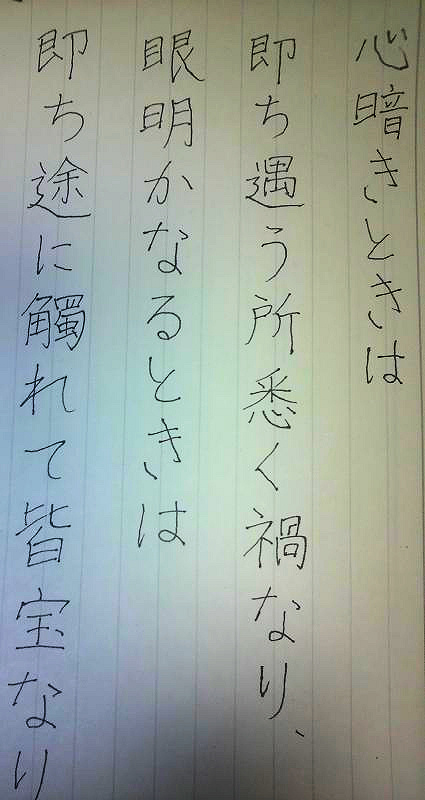 心暗きときは
即ち遇う所悉く禍なり、
眼明かなるときは
即ち途に觸れて皆宝なり